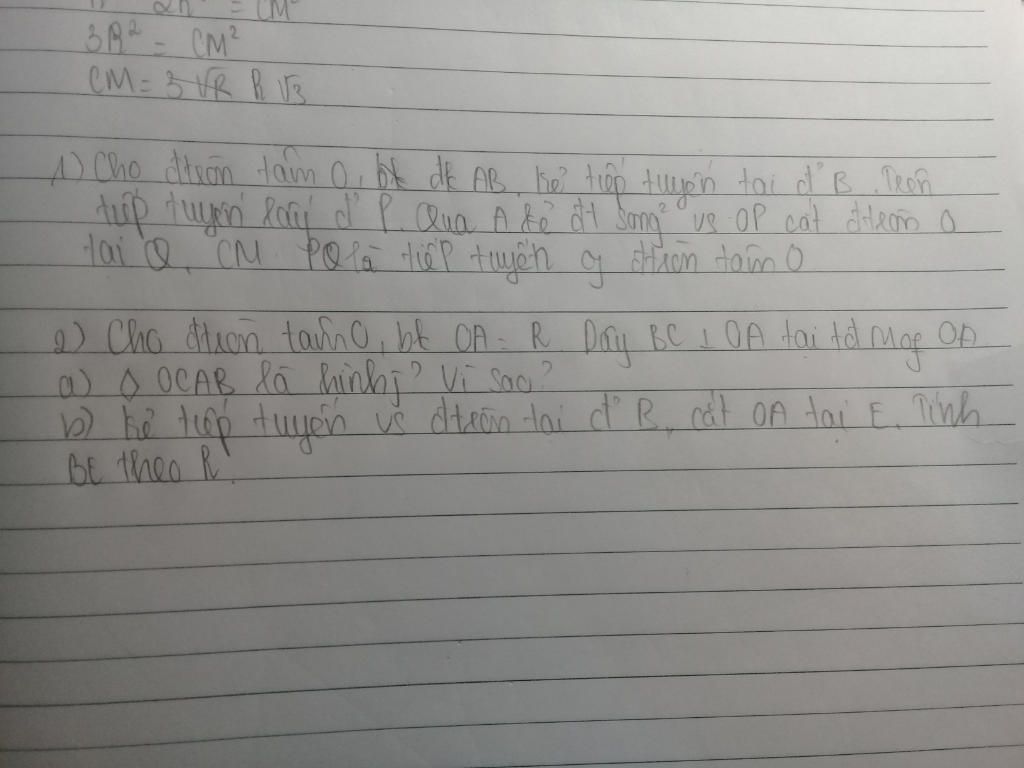 3R² = CM²
CM = 3√R R√3
1) Cho đtròn tâm O, bk đk AB. Kẻ tiếp tuyến tại đ' B. Trên
tiếp tuyến lấy đ' P. Qua A kẻ đt song² vs OP cắt đtròn O
tại Q, CM PQ là tiếp tuyến of đtròn tâm O
2) Cho đtròn tâm O, bk OA = R. Dây BC ⊥ OA tại tđ M of OA
a) ◊ OCAB là hình j? Vì sao?
b) Kẻ tiếp tuyến vs đtròn tại đ' B, cắt OA tại E. Tính
BE theo R.